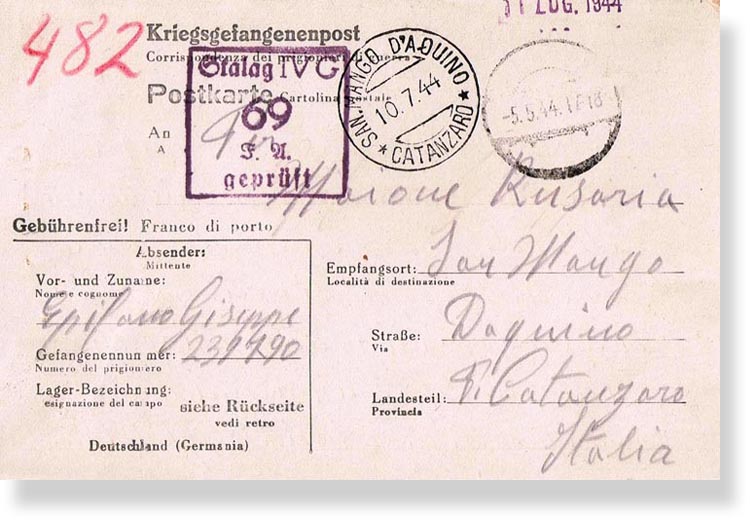 482
31 LUG. 1944
Kriegsgefangenenpost
Corrispondenza dei prigionieri di guerra
Stalag IV G
69
F. A.
geprüft
SAN. MANGO D'AQUINO
10.7.44
* CATANZARO *
-5.5.44.17-18
Postkarte Cartolina postale
An
A
Maione Rusaria
Gebührenfrei! Franco di porto
Absender:
Mittente
Vor- und Zuname:
Nome e cognome
Epifano Giseppe
Gefangenennummer: 239790
Numero del prigioniero
Lager-Bezeichnung:
esignazione del campo
siehe Rückseite
vedi retro
Deutschland (Germania)
Empfangsort: San Mango
Località di destinazione
Straße: Daquino
Via
Landesteil: P. Catanzaro
Provincia
Italia